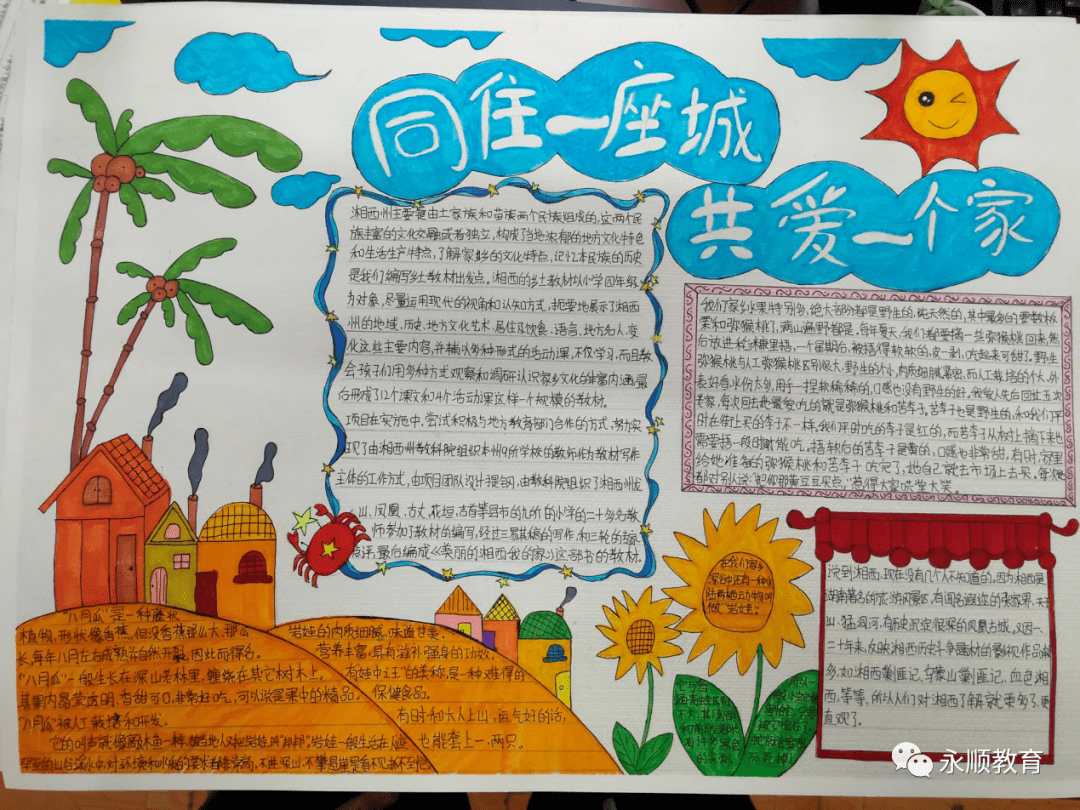 同住一座城
共爱一个家
湘西州主要是由土家族和苗族两个民族组成的,这两个民
族丰富的文化交融或者独立,构成了当地浓郁的地方文化特色
和生活生产特点,了解家乡的文化特点,记忆本民族的历史
是我们编写乡土教材出发点。湘西的乡土教材以小学四年级
为对象,尽量运用现代的视角和认知方式,扼要地展示了湘西
州的地域,历史,地方文化艺术,居住及饮食,语言,地方名人,变
化这些主要内容,并辅以多种形式的活动课,不仅学习,而且教
会孩子们用多种方式观察和调研认识家乡文化的丰富内涵,最
后形成了12个课文和4个活动课这样一个规模的教材。
项目在实施中,尝试积极与地方教育部门合作的方式,努力实
现了由湘西州教科院组织本州9所学校的教师作为教材写作
主体的工作方式,由项目团队设计提纲,由教科院组织了湘西州龙
山、凤凰、古丈,花垣,吉首等县市的九所的小学的二十多名教
师参加了教材的编写,经过三易其稿的写作,和三轮的专家
最后编成《美丽的湘西我的家》这部书的教材。
我们家乡水果特别多,绝大部分都是野生的,纯天然的,其中最多的要数板
栗和弥猴桃了,满山遍野都是。每年夏天,我们都要摘一些弥猴桃回来,然
后放进米糠里捂,一个星期后,被捂得软软的,皮一剥,吃起来可甜了。野生
弥猴桃与人工弥猴桃区别很大,野生的小,肉质细腻紧密,而人工栽培的个大,外
表好看,水份太多,用手一捏软稀稀的,口感也没有野生的好。我爱人先后回过五次
老家,每次回去她最爱吃的就是弥猴桃和苦李子,苦李子也是野生的,和我们平
时在街上买的李子不一样,我们平时吃的李子是红的,而苦李子从树上摘下来也
需要捂一段时间才能吃。捂软后的苦李子是黄的,口感也非常甜。有时,家里
给她准备的弥猴桃和苦李子吃完了,她自己就去市场上去买,每次她
都对别人说:"把你那黄豆豆买点,"惹得大家哄堂大笑。
说到湘西,现在没有几个人不知道的,因为湘西是
湖南著名的旅游风景区,有闻名遐迩的张家界、天子
山、猛洞河,有历史沉淀很深的凤凰古城,又因一、
二十年来,反映湘西历史斗争题材的影视作品诸
多,如湘西剿匪记,乌蒙山剿匪记,血色湘
西,等等,所以人们对湘西了解就更多了,更
直观了。
在我们家乡
深谷中还有一种水
陆两栖动物叫
做"岩娃"。
"八月瓜"是一种藤状
植物,形状像香蕉,但没香蕉那么大,那么
长,每年八月左右成熟并自然开裂,因此而得名。
"八月瓜"一般生长在深山老林里,缠绕在其它树木上。
其果肉晶莹透明,香甜可口,非常好吃,可以说是果中的精品。
"八月瓜"被人工栽培和开发。
岩娃的肉质细腻,味道甘美,
营养丰富,具有滋补强身的功效,
有"蛙中之王"的美称,是一种难得的
保健食品。
有时和大人上山,运气好的话,
也能套上一、两只。
永顺教育